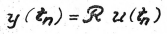 y(tₙ) = ℛ u(tₙ)